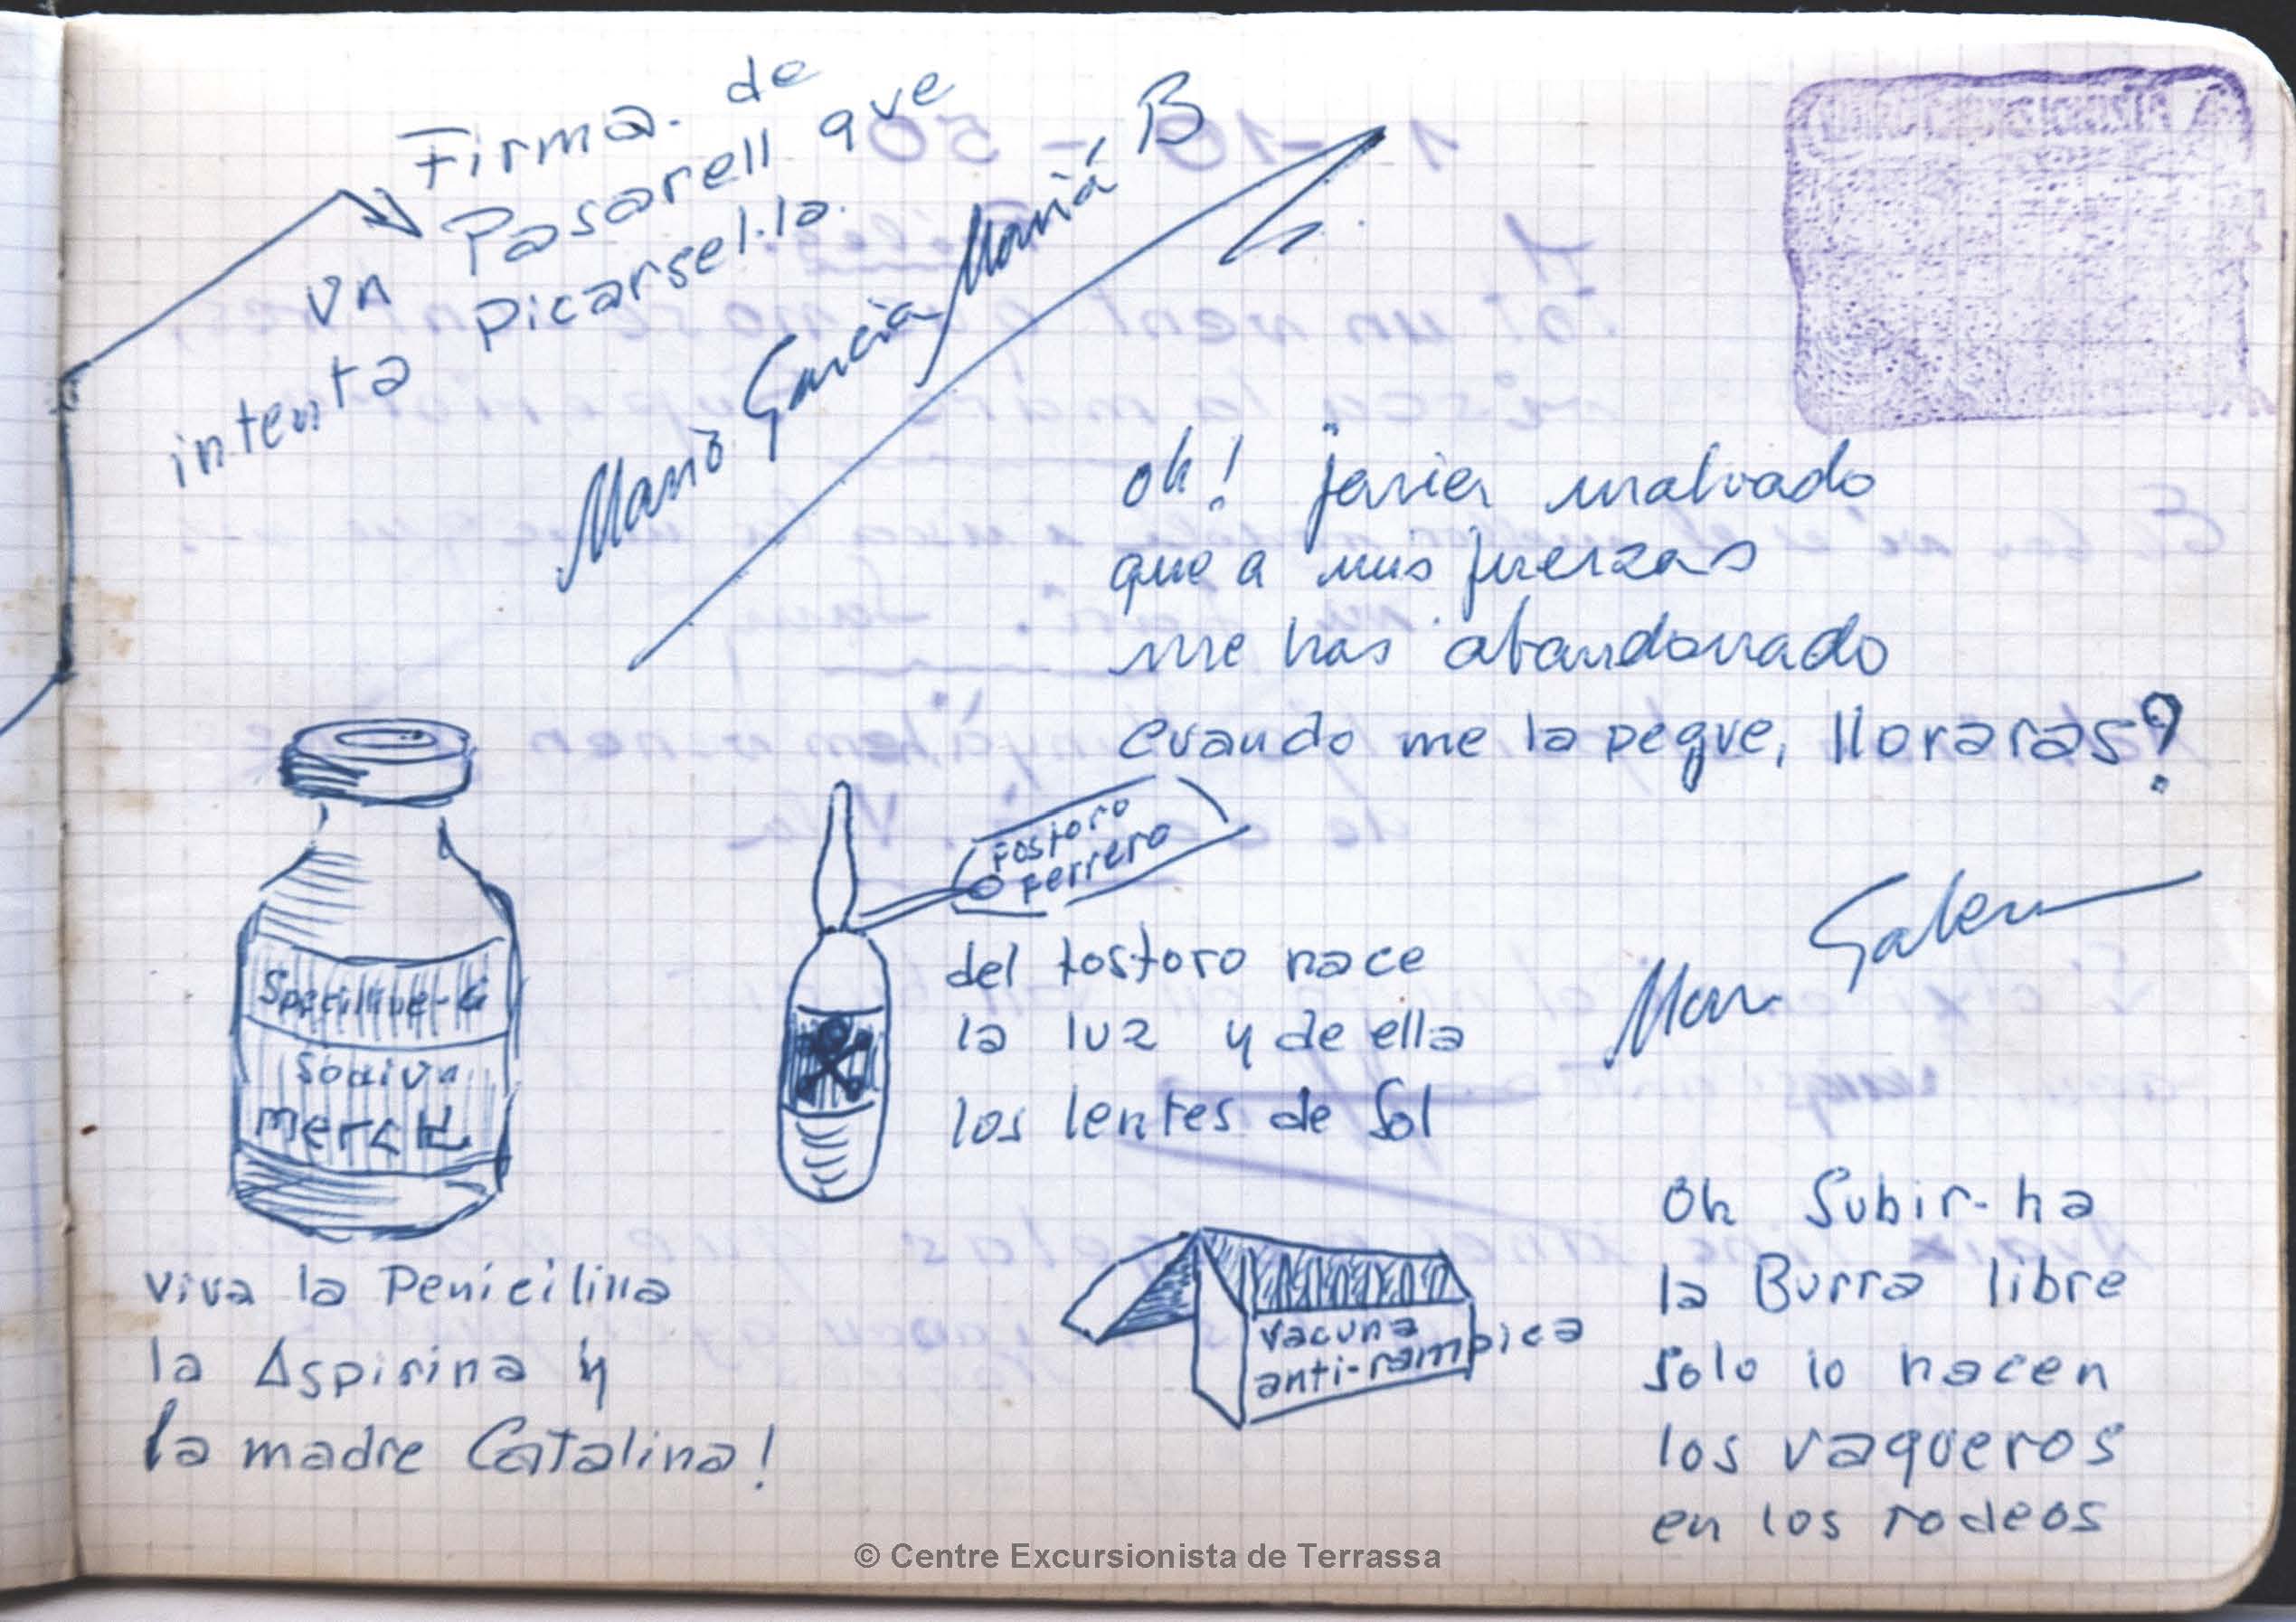 Firma. de
un Pasarell que
intenta picarsel·la.
Mariò Garcia Mariá B
oh! javier malvado
que a mis fuerzas
me has abandonado
cuando me la pegue, lloraras?
Fosforo
Ferrero
del fosforo nace
la luz y de ella
los lentes de Sol
Sodiva
merck
viva la Penicilina
la Aspirina y
la madre Catalina!
vacuna
anti-rampica
Oh Subir-ha
la Burra libre
Solo lo hacen
los vaqueros
en los rodeos
© Centre Excursionista de Terrassa